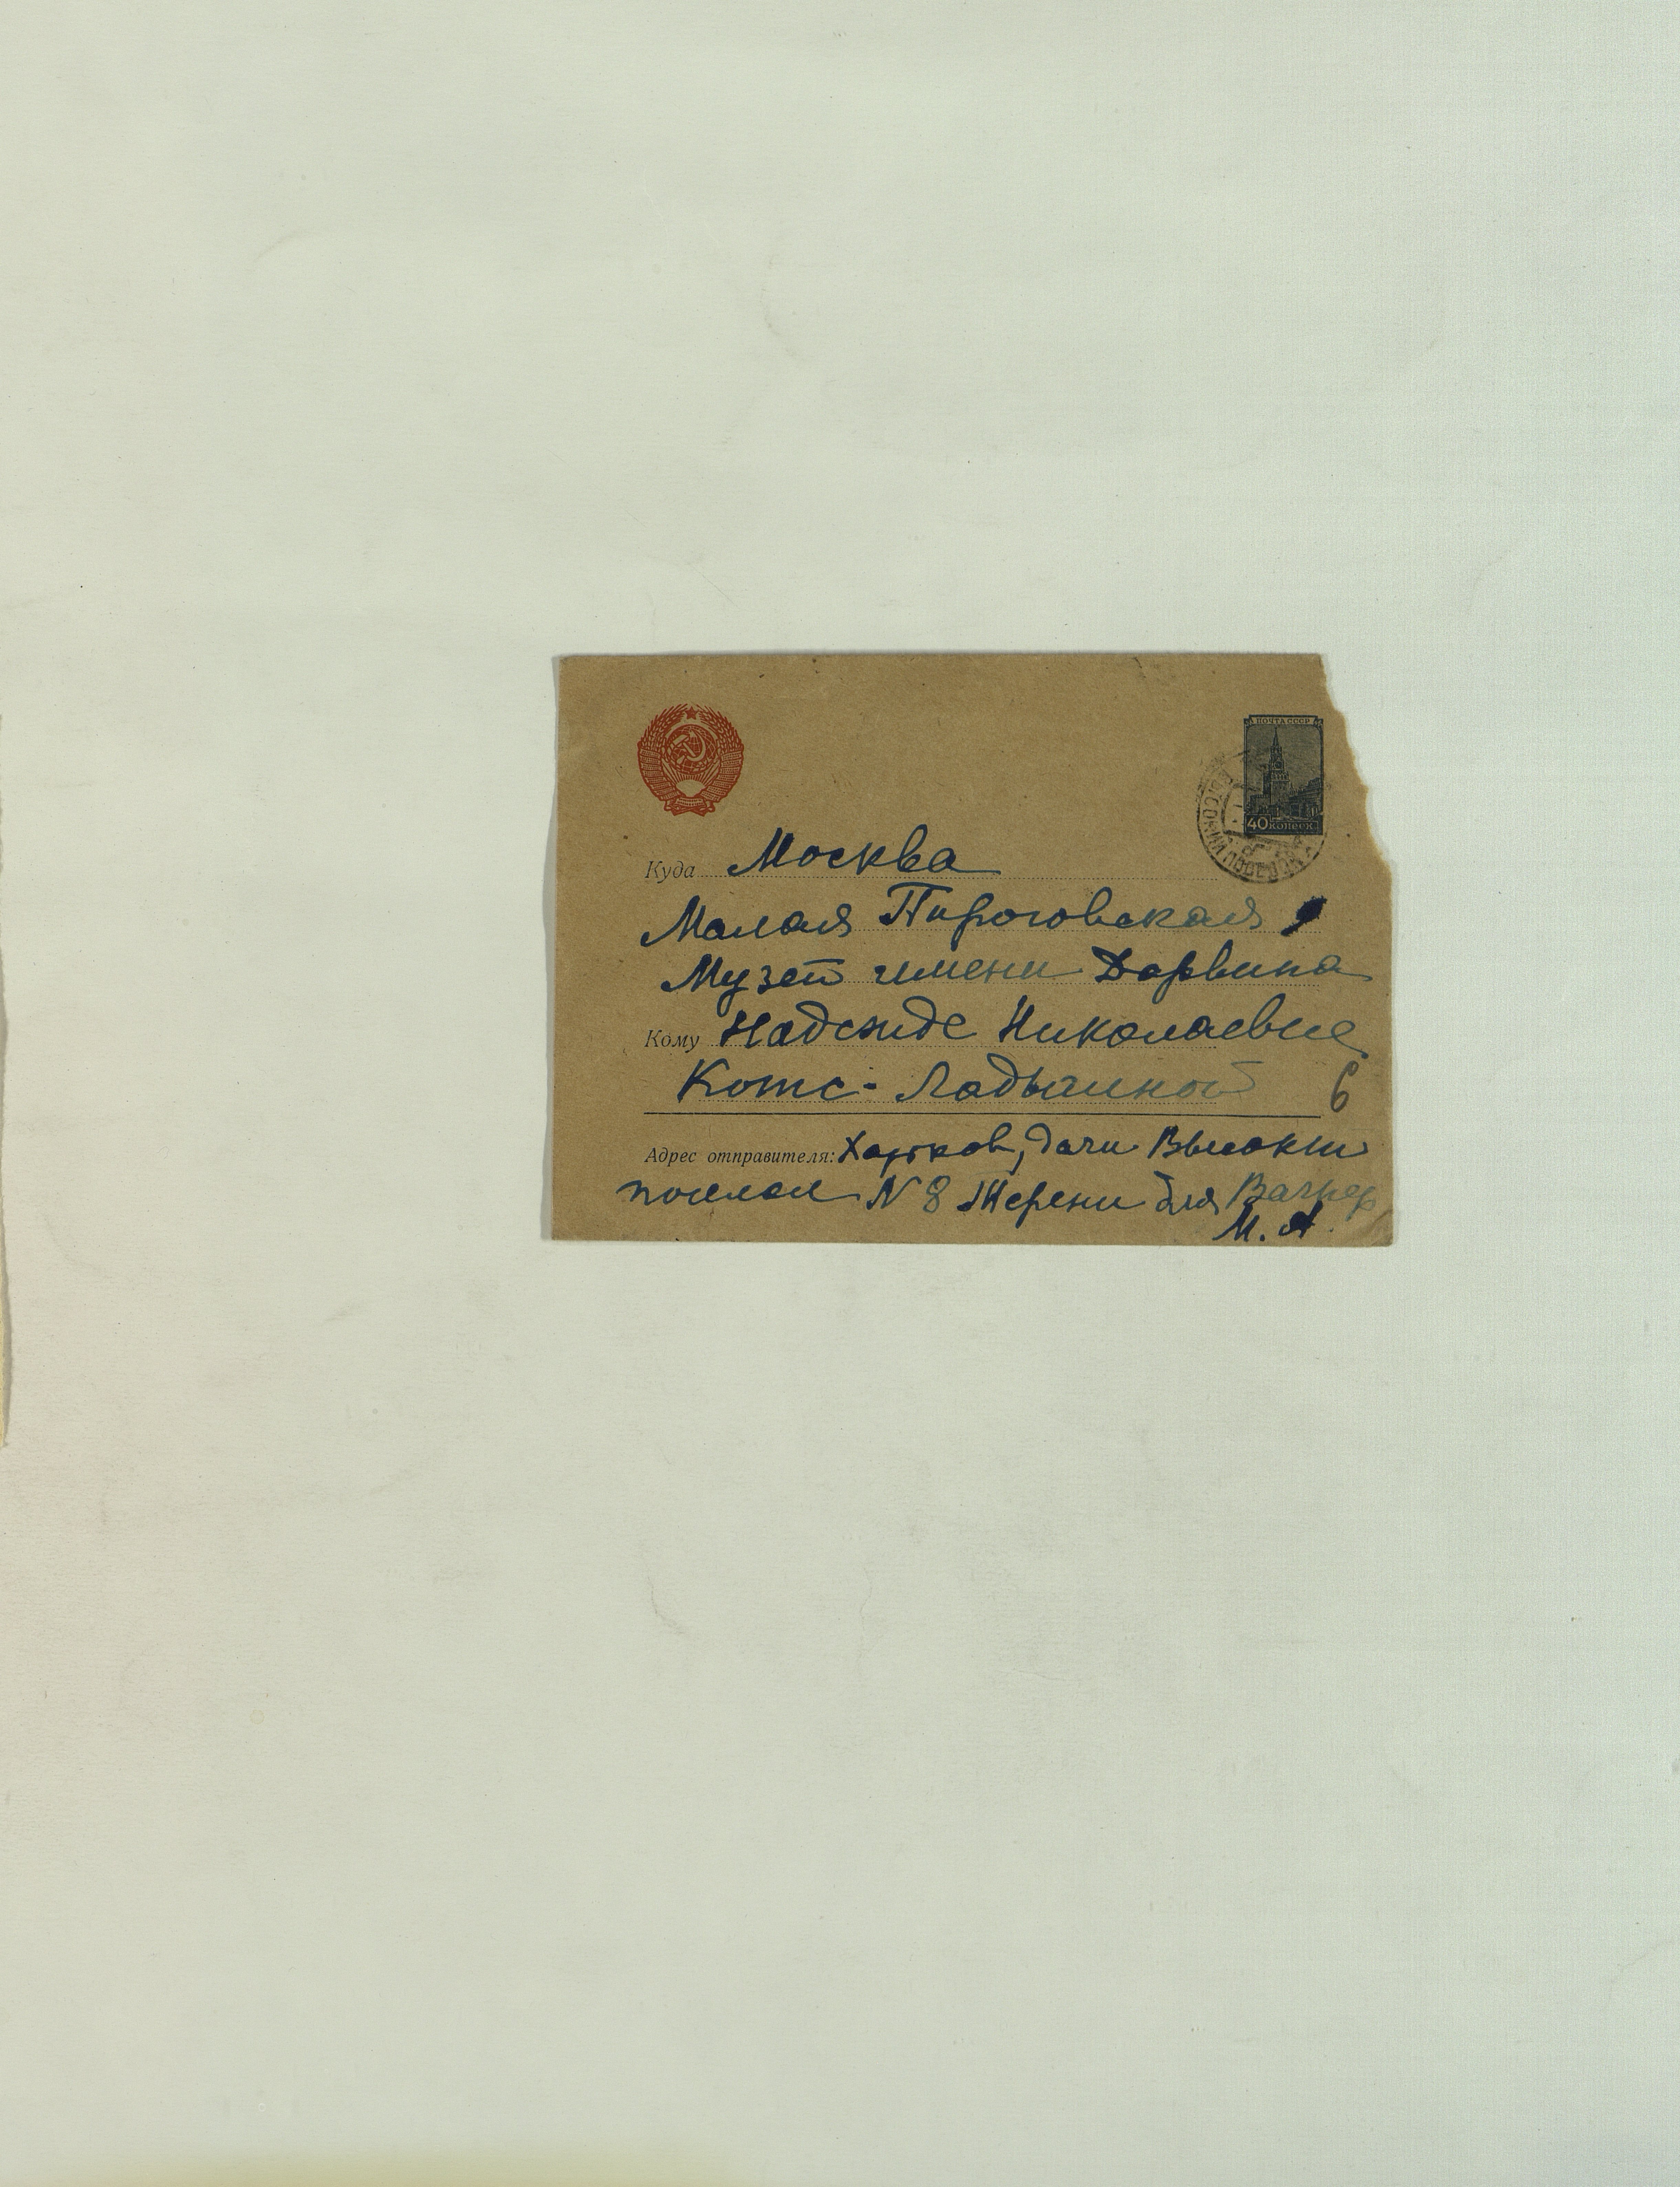 ПОЧТА СССР
40 копеек
Куда Москва
Малая Пироговская
Музей имени Дарвина
Кому Надежде Николаевне
Котс-Ладыгиной
6
Адрес отправителя: Харьков, дачи Высокий
поселок N 8 Терени для Вагнер
М. А.